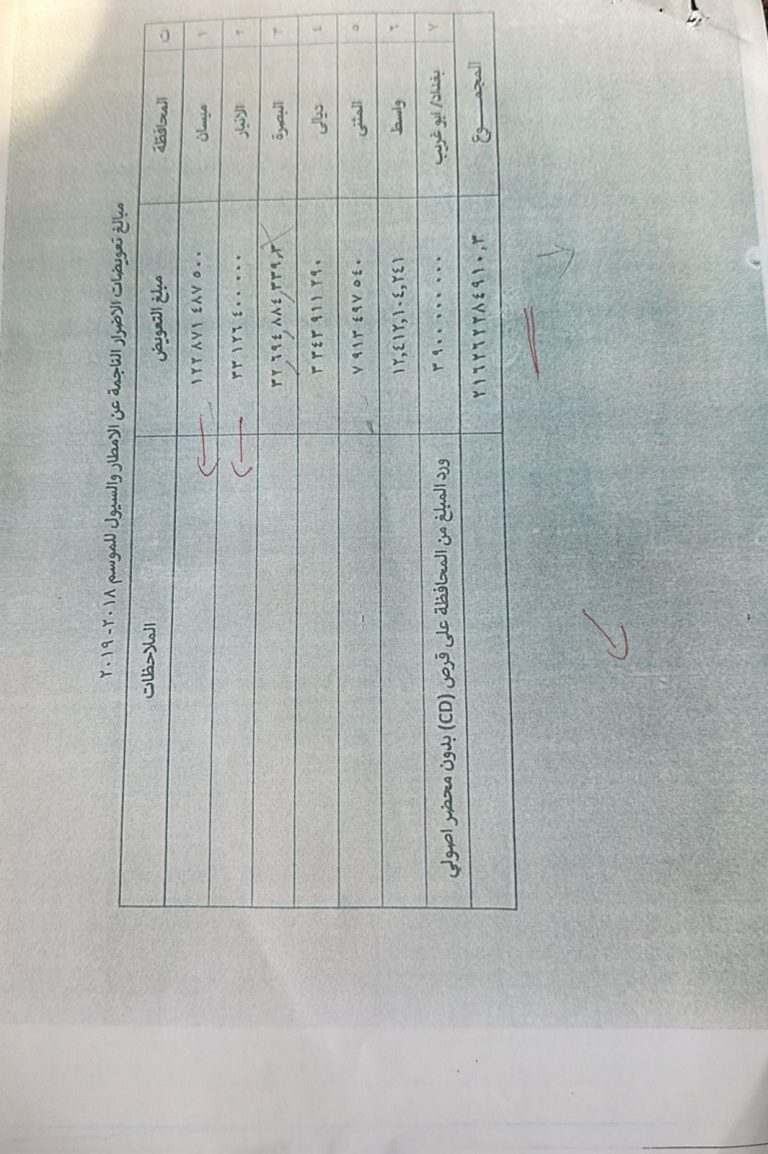 مبالغ تعويضات الاضرار الناجمة عن الامطار والسيول للموسم ٢٠١٨-٢٠١٩
ت المحافظة مبلغ التعويض الملاحظات
١ ميسان ١٢٢ ٨٧١ ٤٨٧ ٥٠٠
٢ الانبار ٣٣ ١٢٦ ٤٠٠ ٠٠٠
٣ البصرة ٣٢,٦٩٤,٨٨٤,٣٣٩.٣
٤ ديالى ٣ ٣٤٣ ٩١١ ٢٩٠
٥ المثنى ٧ ٩١٣ ٤٩٧ ٥٤٠
٦ واسط ١٢,٤١٢,١٠٤,٢٤١
٧ بغداد/ ابو غريب ٣ ٩٠٠ ٠٠٠ ٠٠٠ ورد المبلغ من المحافظة على قرص (CD) بدون محضر اصولي
المجمـــوع ٢١٦٢٦٢٢٨٤٩١٠,٣